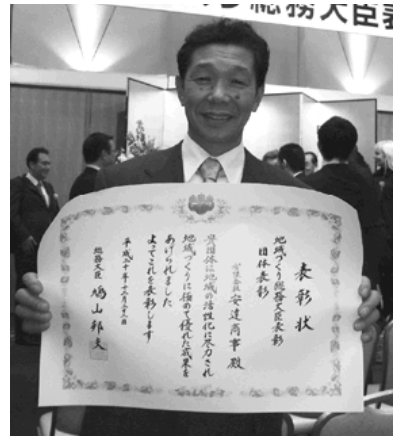 総務大臣表
表彰状
地域づくり総務大臣表彰
団体表彰
有限会社 安達商事 殿
貴団体は地域の活性化に尽力され
地域づくりに極めて優れた成果を
あげられました
よってこれを表彰します
平成二十年
総務大臣 鳩山邦夫